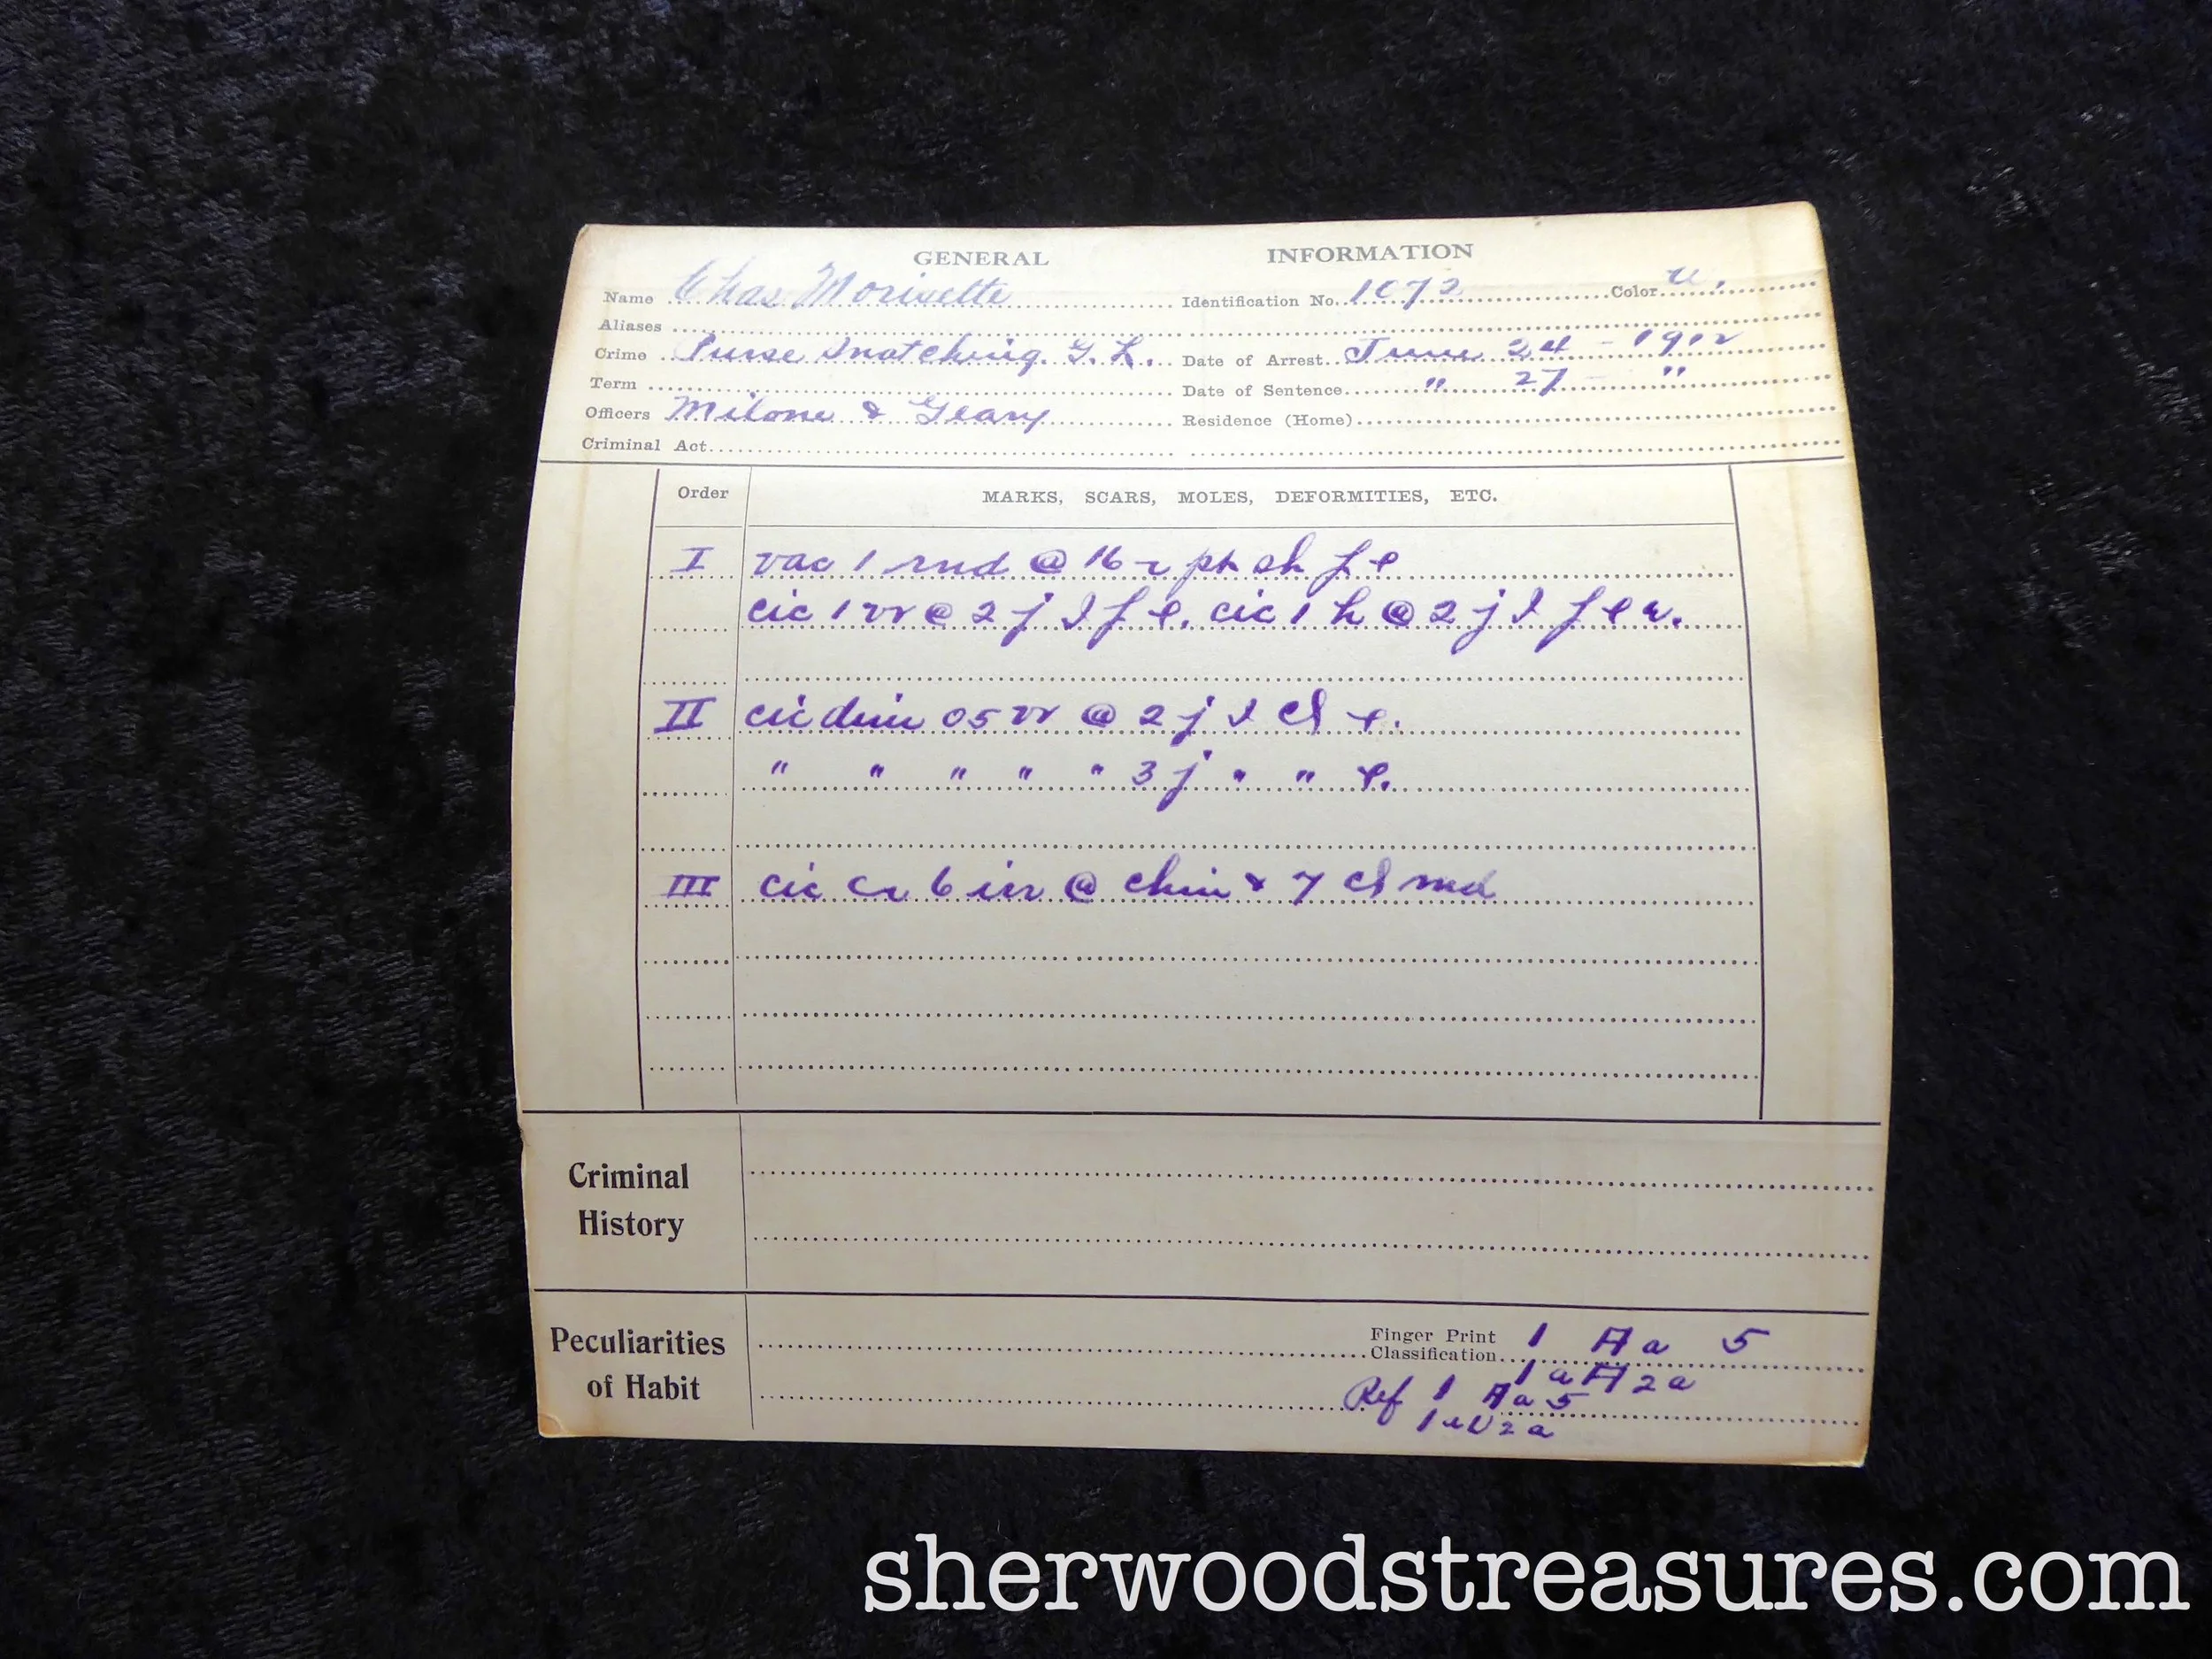 GENERAL INFORMATION
Name Chas Morisette Identification No. 1072 Color
Aliases
Crime Purse Snatching. G. L. Date of Arrest June 24 - 1912
Term Date of Sentence " 27 - "
Officers Milone & Geary Residence (Home)
Criminal Act
Order MARKS, SCARS, MOLES, DEFORMITIES, ETC.
I vac 1 rnd @ 16 r ph sh f e
cic 1 vr @ 2 j I f e. cic 1 h @ 2 j I f e
II cic dim 05 vr @ 2 j I cl e.
" " " " " 3 j " " e.
III cic cr 6 @ chin & 7 cl md
Criminal
History
Peculiarities
of Habit
Finger Print
Classification 1 A a 5
1 a A 2 a
Ref 1 A a 5
1 2 a
sherwoodstreasures.com